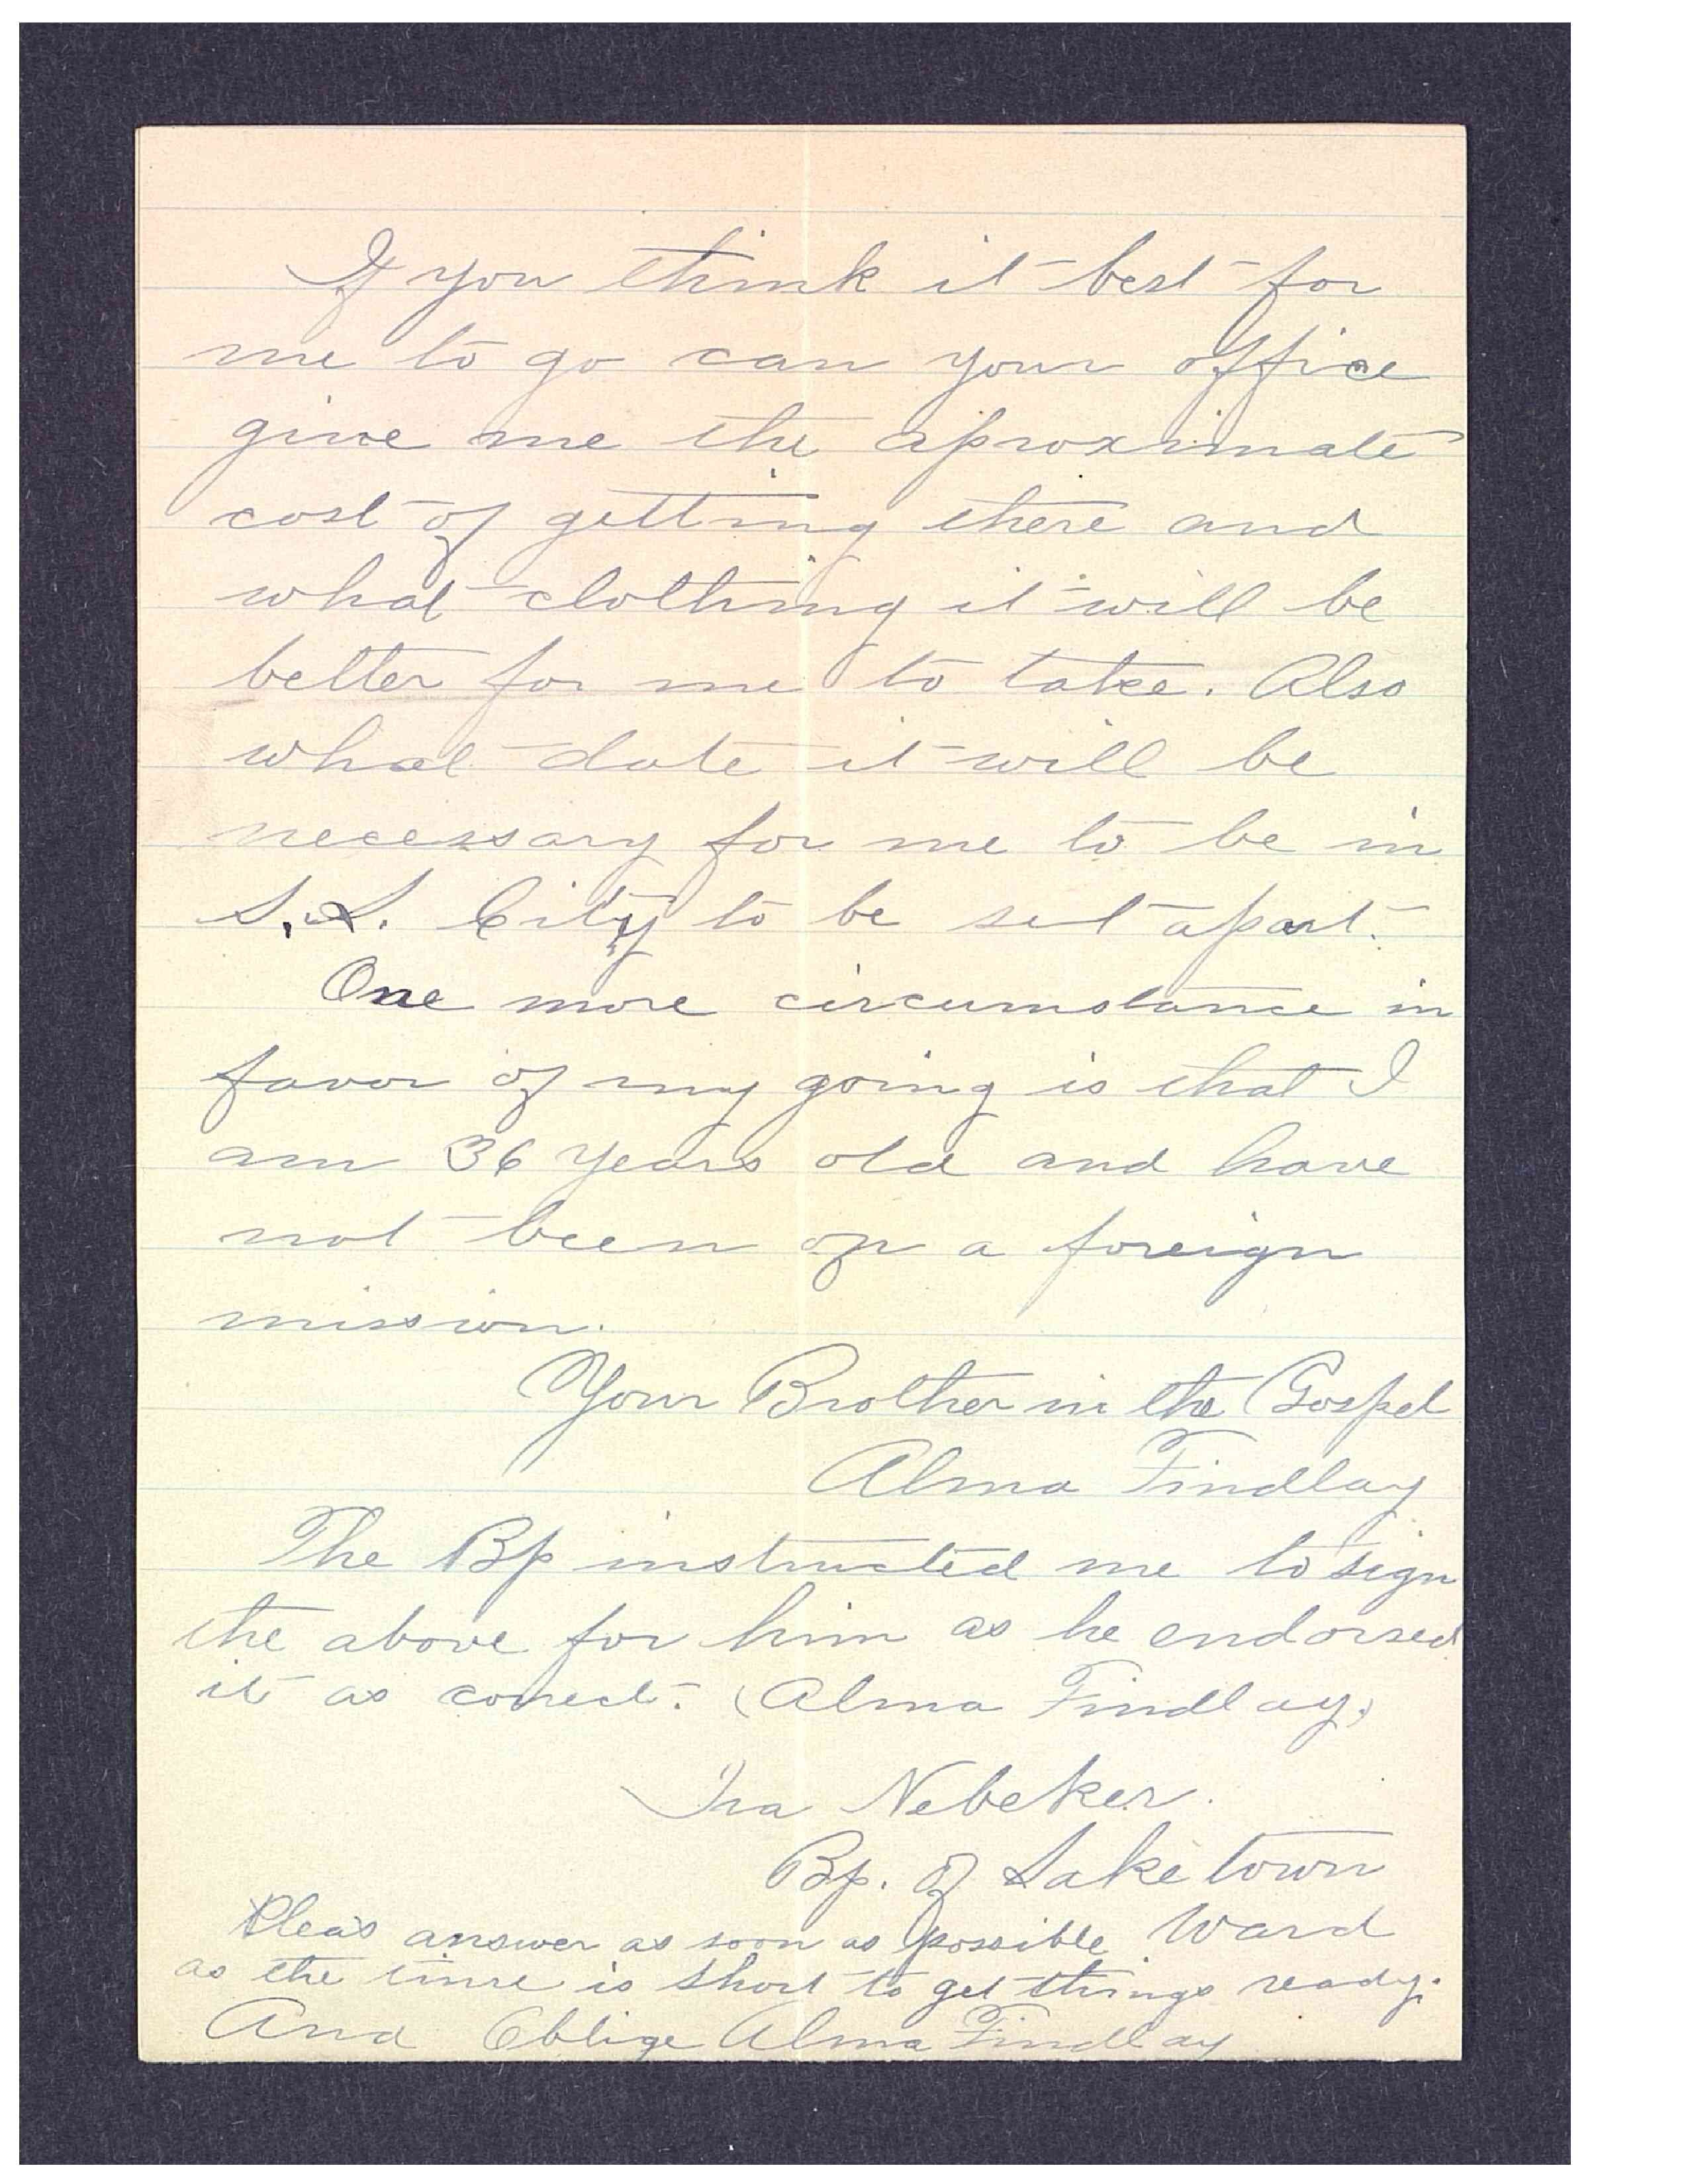 If you think it best for
me to go can your office
give me the aproximate
cost of getting there and
what clothing it will be
better for me to take. Also
what date it will be
necessary for me to be in
S.L. City to be set apart.
One more circumstance in
favor of my going is that I
am 36 years old and have
not been on a foreign
mission.
Your Brother in the Gospel
Alma Findlay
The Bp instructed me to sign
the above for him as he endorsed
it as correct. (Alma Findlay)
Ira Nebeker.
Bp. of Laketown
Ward
Pleas answer as soon as possible
as the time is short to get things ready.
And Oblige Alma Findlay